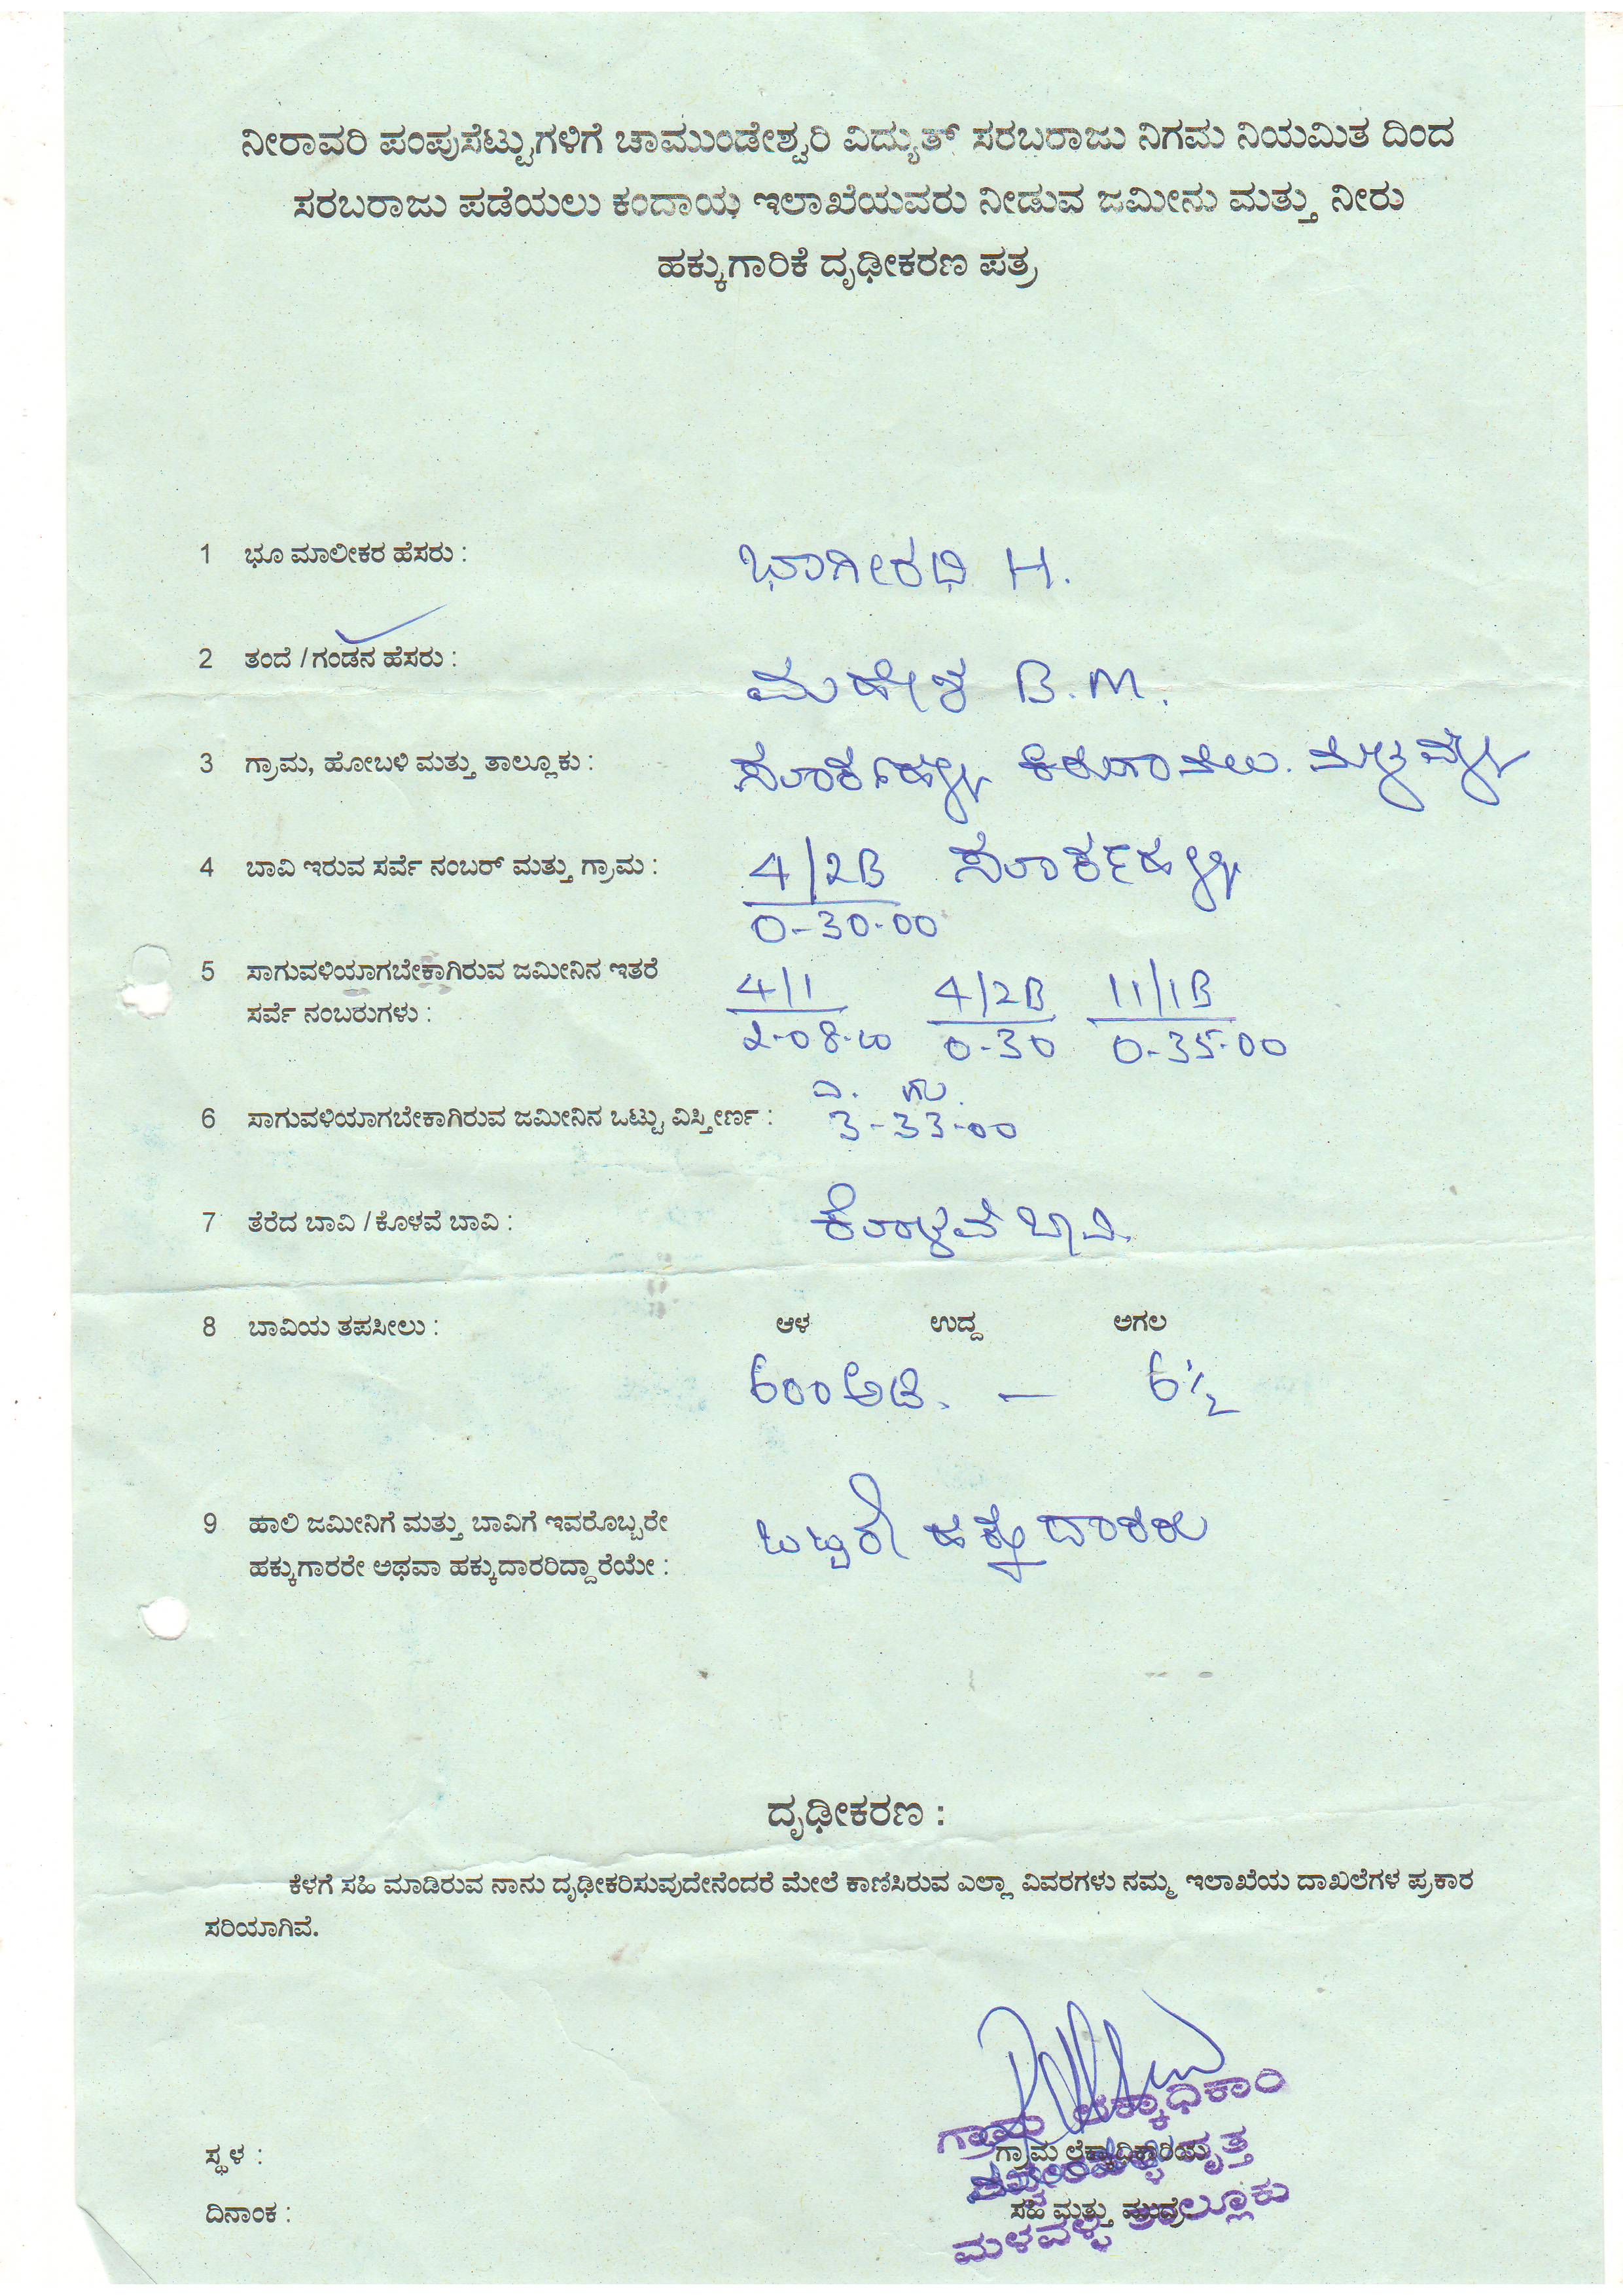 ನೀರಾವರಿ ಪಂಪುಸೆಟ್ಟುಗಳಿಗೆ ಚಾಮುಂಡೇಶ್ವರಿ ವಿದ್ಯುತ್ ಸರಬರಾಜು ನಿಗಮ ನಿಯಮಿತ ದಿಂದ
ಸರಬರಾಜು ಪಡೆಯಲು ಕಂದಾಯ ಇಲಾಖೆಯವರು ನೀಡುವ ಜಮೀನು ಮತ್ತು ನೀರು
ಹಕ್ಕುಗಾರಿಕೆ ದೃಢೀಕರಣ ಪತ್ರ
1 ಭೂ ಮಾಲೀಕರ ಹೆಸರು : ಭಾಗೀರಥಿ H.
2 ತಂದೆ / ಗಂಡನ ಹೆಸರು : ಮಹೇಶ B.M.
3 ಗ್ರಾಮ, ಹೋಬಳಿ ಮತ್ತು ತಾಲ್ಲೂಕು : ಕಿರುಗಾವಲು. ಮಳವಳ್ಳಿ
4 ಬಾವಿ ಇರುವ ಸರ್ವೆ ನಂಬರ್ ಮತ್ತು ಗ್ರಾಮ : 4/2B
0-30-00
5 ಸಾಗುವಳಿಯಾಗಬೇಕಾಗಿರುವ ಜಮೀನಿನ ಇತರೆ 4/1 4/2B 11/1B
ಸರ್ವೆ ನಂಬರುಗಳು : 2-08-00 0-30 0-35-00
ಎ. ಗು.
6 ಸಾಗುವಳಿಯಾಗಬೇಕಾಗಿರುವ ಜಮೀನಿನ ಒಟ್ಟು ವಿಸ್ತೀರ್ಣ : 3-33-00
7 ತೆರೆದ ಬಾವಿ / ಕೊಳವೆ ಬಾವಿ : ಕೊಳವೆ ಬಾವಿ.
8 ಬಾವಿಯ ತಪಸೀಲು : ಆಳ ಉದ್ದ ಅಗಲ
600 ಅಡಿ. — 6½
9 ಹಾಲಿ ಜಮೀನಿಗೆ ಮತ್ತು ಬಾವಿಗೆ ಇವರೊಬ್ಬರೇ ಒಬ್ಬರೇ ಹಕ್ಕುದಾರರು
ಹಕ್ಕುಗಾರರೇ ಅಥವಾ ಹಕ್ಕುದಾರರಿದ್ದಾರೆಯೇ :
ದೃಢೀಕರಣ :
ಕೆಳಗೆ ಸಹಿ ಮಾಡಿರುವ ನಾನು ದೃಢೀಕರಿಸುವುದೇನೆಂದರೆ ಮೇಲೆ ಕಾಣಿಸಿರುವ ಎಲ್ಲಾ ವಿವರಗಳು ನಮ್ಮ ಇಲಾಖೆಯ ದಾಖಲೆಗಳ ಪ್ರಕಾರ
ಸರಿಯಾಗಿವೆ.
ಗ್ರಾಮ ಲೆಕ್ಕಾಧಿಕಾರಿ
ಸ್ಥಳ : ಗ್ರಾಮ ಲೆಕ್ಕಾಧಿಕಾರಿಯ
ವೃತ್ತ
ದಿನಾಂಕ : ಸಹಿ ಮತ್ತು ಮುದ್ರೆ
ಮಳವಳ್ಳಿ ತಾಲ್ಲೂಕು